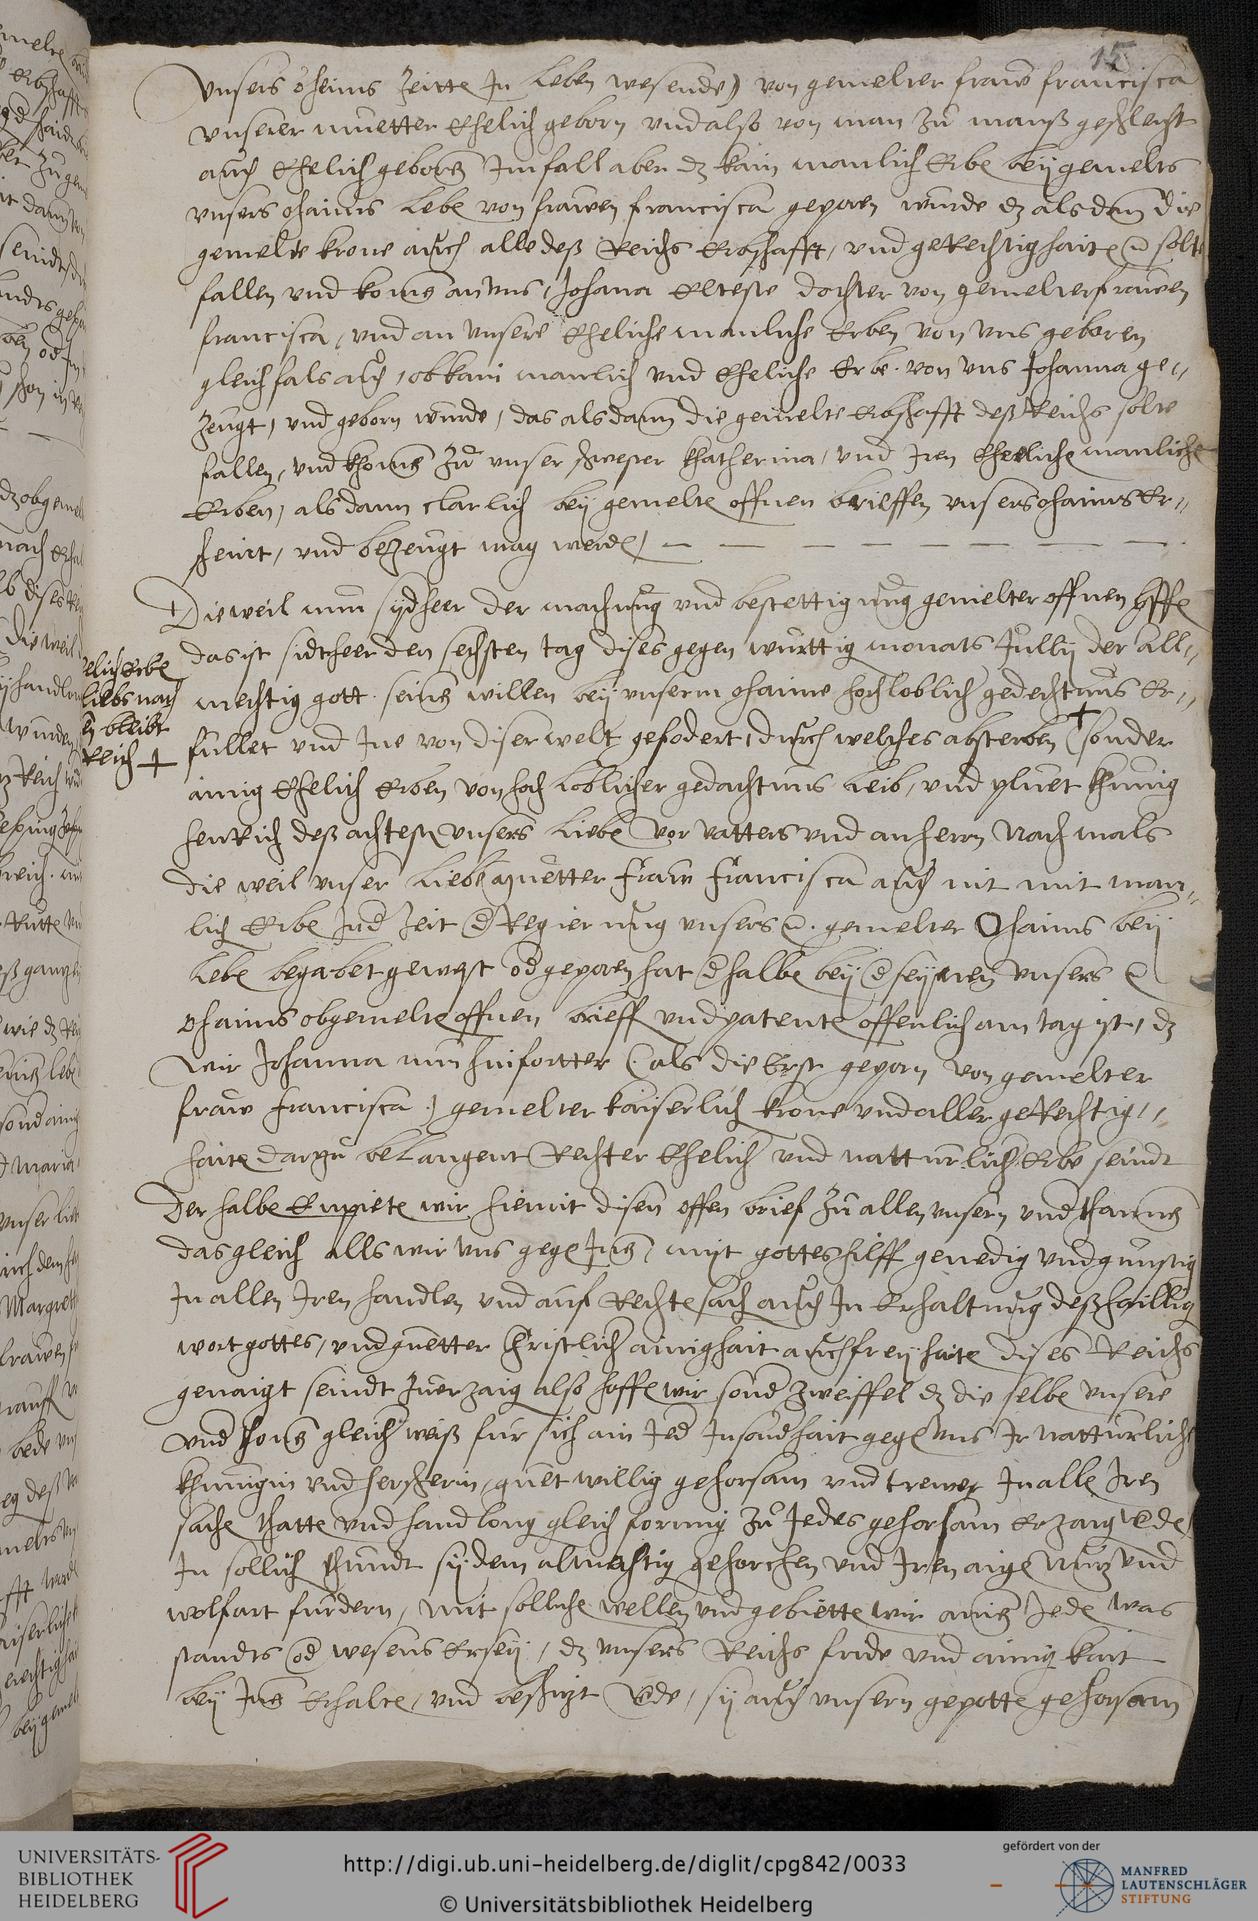 15
vnsers oheims Zeitte In Leben wesende) von gemelter fraw francisca
vnserer muetter Ehelich geborn vnd also von man zu manß geschlecht
auch Ehelich geborn Im fall aber dz kain manlich Erbe bey gemelts
vnsers ohaims Lebe von frawen francisca geporen wurde dz als dan die
gemelte krone auch alle deß Reichs Erbschafft, vnd gerechtighaite solte
fallen vnd komen an vns, Johana Elteste dochter von gemelter frawen
francisca, vnd an vnsere Eheliche manliche Erben von vns geboren
gleichfals auch, ob kain manlich vnd Eheliche Erbe von vns Johanna ge-,
zeugt, vnd geborn wurde, das als dann die gemelte Erbschafft deß Reichs solte
fallen, vnd khomen zu vnser schwester Khatherina, vnd Iren Eheliche manliche
Erben, als dann clarlich bey gemelte offnen brieffen vnsers ohaims Er-,
scheint, vnd bezeugt mag werde,
Dieweil nun sydheer der machung vnd bestettigung gemelter offnen
das ist sidtheer den sechsten tag dises gegenwurttig monats Julij der all-,
mechtig gott seines willen bey vnserm ohaime hochloblich gedechtnus Er-,
fullet vnd Ine von diser welt gefodert, durch welches absterben (sonder
ainig Ehelich Erben von hochloblicher gedachtnus Leib, vnd pluet khunig
henrich deß achtesten vnsers Liebe vor vatters vnd anherrn Nachmals
die weil vnser Liebe muetter Fraw Francisca auch nit mit man-,
lich Erbe In d Zeit d Regierung vnsers gemelter Ohaims bey
Lebe begabet gewest od geporen hat dhalbe bey d seynen vnsers
ohaims obgemelte offnen brieff vnd patente offenlich am tag ist, dz
Wir Johanna nun hinfortter (als die Erst geporn von gemelter
fraw francisca) gemelter kaiserlich krone vnd aller gerechtig-,
haite darzu belangent Rechter Ehelich vnd natturlich Erbe seindt
Derhalbe Empiete wir hiemit disen offen brief zu allen vnsern vnd thanen
das gleich alls wir vns gege Inen, mit gottes hilff genedig vnd gunstig
In allen Iren handlen vnd auf Rechte sach auch In Erhaltung deß haillig
wort gottes, vnd guetter Christlich ainighait auch freyhaite dises Reichs
genaigt seindt zuerzaig also hoffe wir sond zweiffel dz die selbe vnsere
vnd thonen gleich weiß fur sich ain Jed Insondhait gege vns Ir natturliche
khunigin vnd herscherin, guetwillig gehorsam vnd trewe In alle Iren
sache thatte vnd handlong gleichformig zu Jedes gehorsam Erzaig
In sollich thundt sy dem almechtig gehorchen vnd Iren aige nutz vnd
wolfart furdern, mit solliche wellen vnd gebiette wir ainem Jede was
standts od wesens Er sey, dz vnsers Reichs fride vnd ainigkait
bey Inen Erhalte, vnd beschizt sy auch vnsern gepotte gehorsam
elich Erbe
leibs nach
bleibt
Reich +
UNIVERSITÄTS-
BIBLIOTHEK
HEIDELBERG
http://digi.ub.uni-heidelberg.de/diglit/cpg842/0033
© Universitätsbibliothek Heidelberg
gefördert von der
MANFRED
LAUTENSCHLÄGER
STIFTUNG